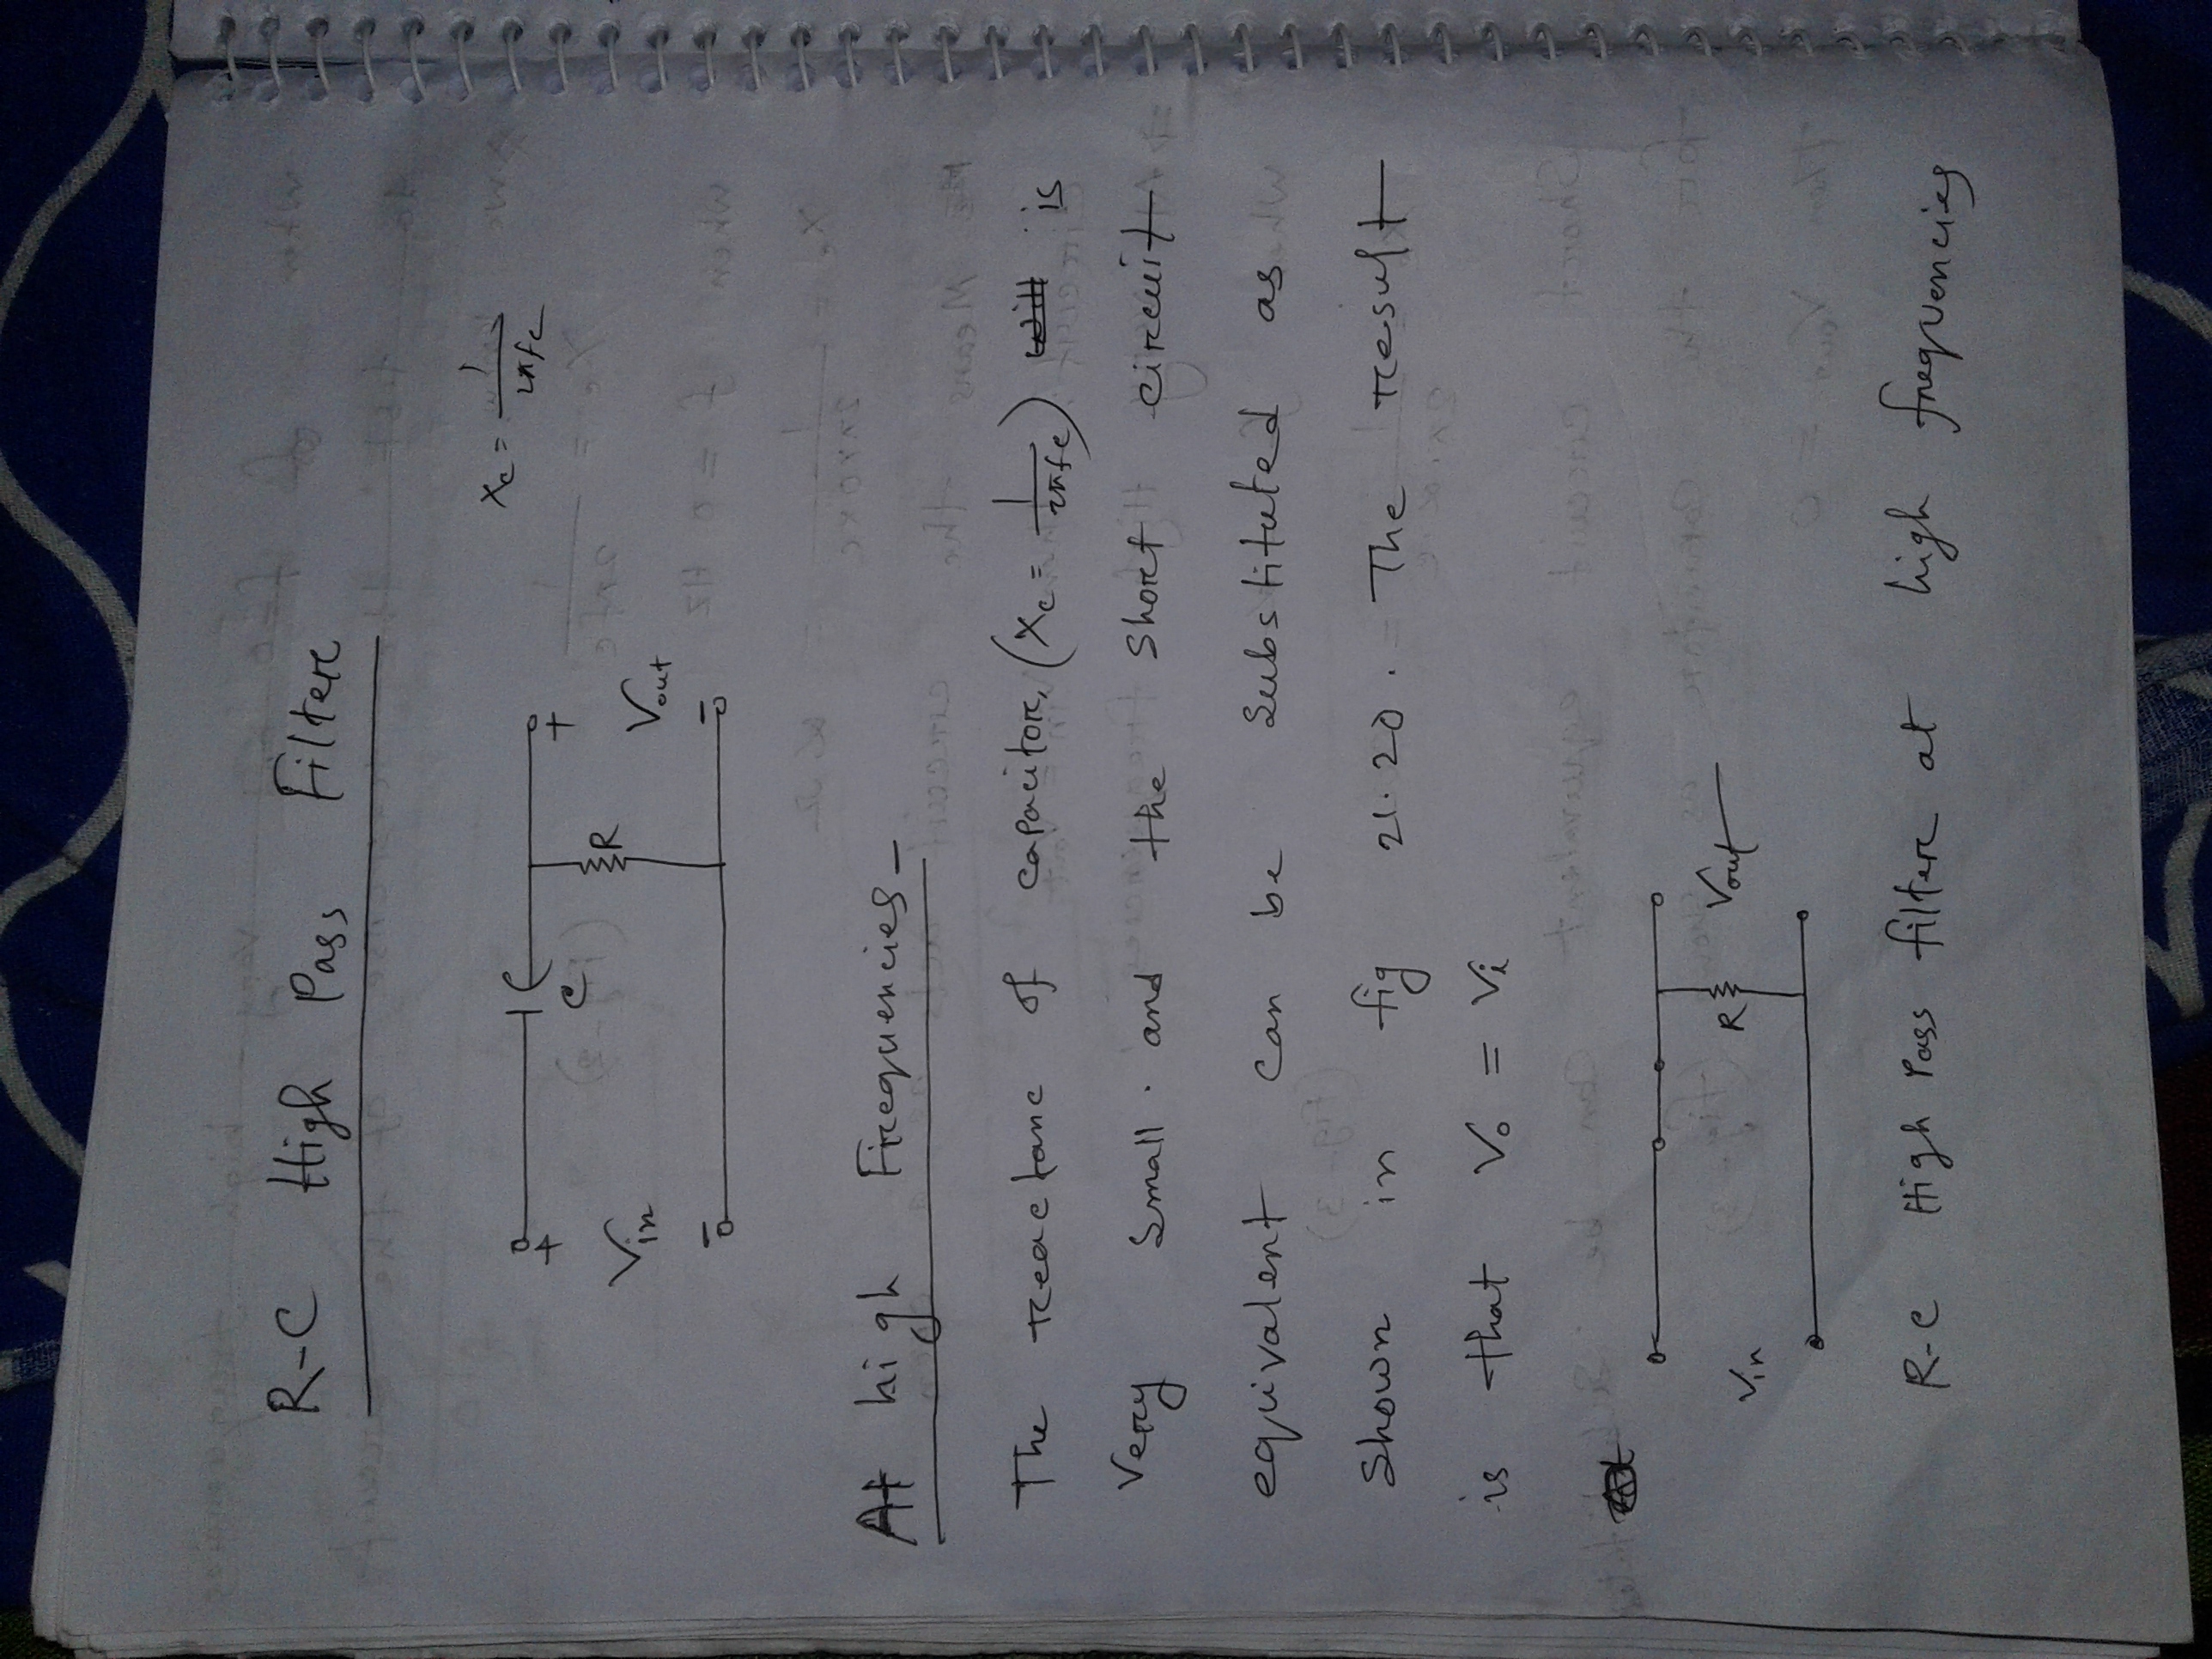 R-C High Pass Filter
Xc = 1/2πfc
+ C +
R
Vin Vout
- -
At high Frequencies -
The reactanc of capacitor, (Xc = 1/2πfc) will is
very small. and the short circuit
equivalent can be substituted as
shown in fig 21.20. The result
is that Vo = Vi
At
Vin R Vout
R-C High Pass filter at high frequencies